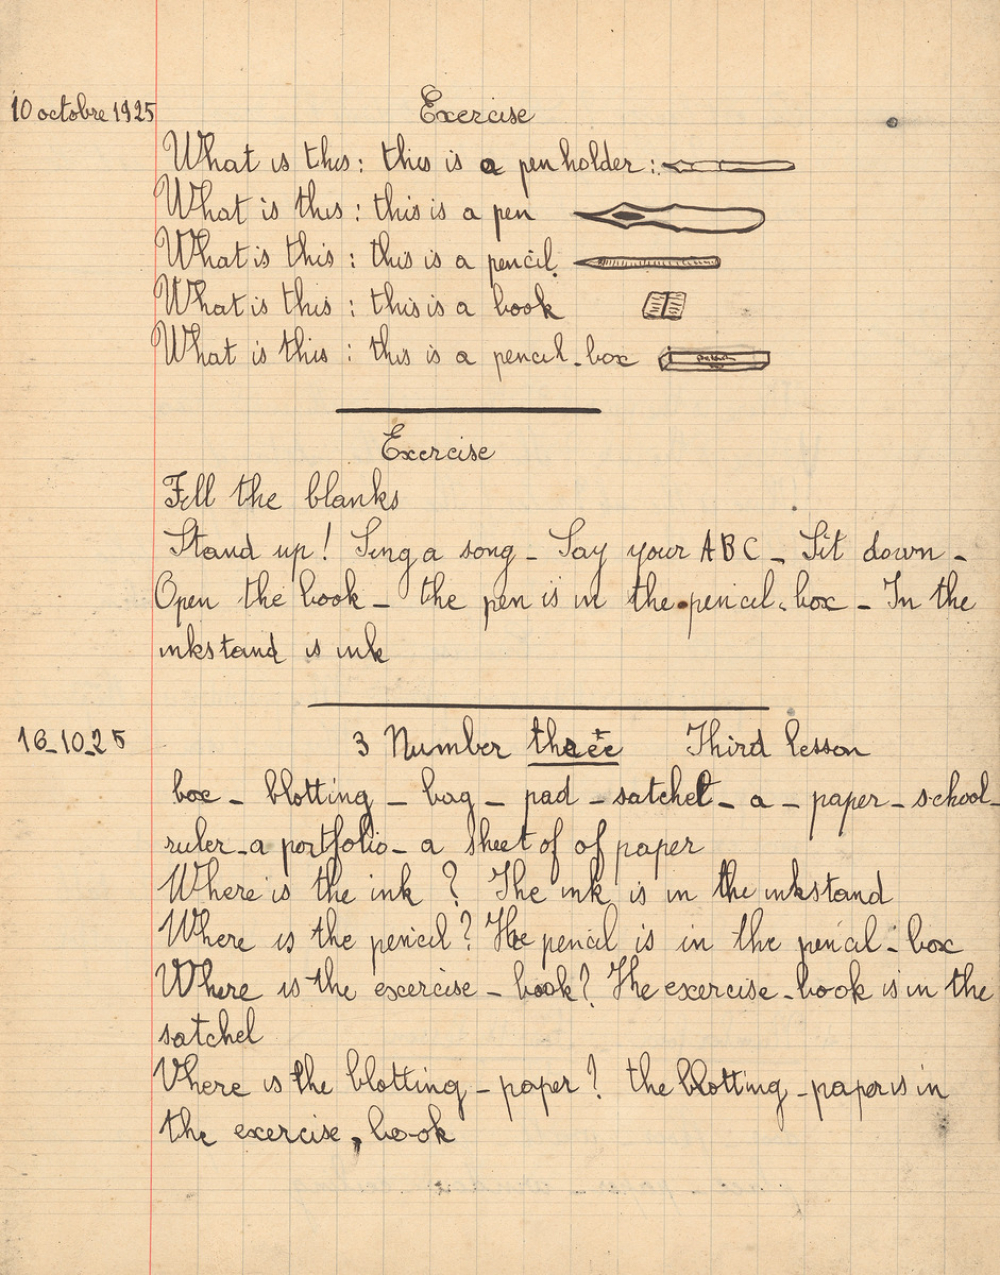 10 octobre 1925 Exercise
What is this : this is a penholder :
What is this : this is a pen
What is this : this is a pencil.
What is this : this is a book
What is this : this is a pencil-box
Exercise
Fill the blanks
Stand up! Sing a song - Say your ABC - Sit down -
Open the book - the pen is in the pencil-box - In the
inkstand is ink
16-10-25 3 Number three Third lesson
box - blotting - bag - pad - satchel - a - paper - school-
ruler - a portfolio - a sheet of of paper
Where is the ink ? The ink is in the inkstand
Where is the pencil ? The pencil is in the pencil-box
Where is the exercise - book ? The exercise-book is in the
satchel
Where is the blotting - paper ? the blotting - paper is in
the exercise, book